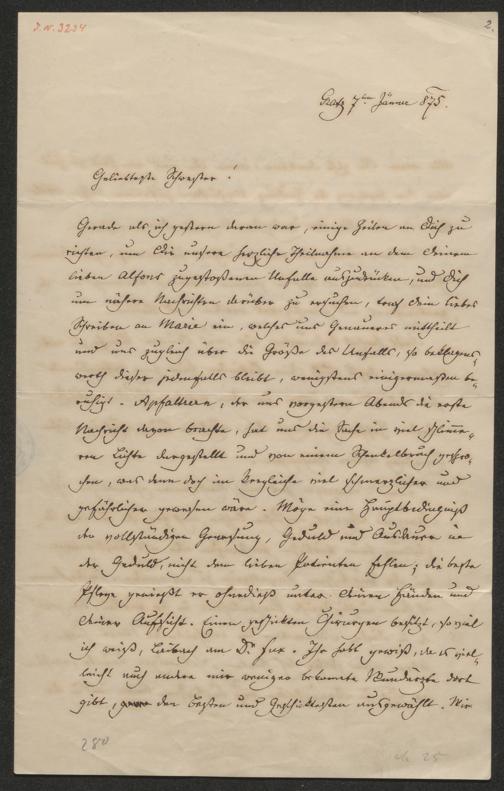 J.N. 3234
2.
Gratz 7ten Jänner 875.
Geliebteste Schwester!
Gerade als ich gestern daran war, einige Zeilen an Dich zu
richten, um Dir unsere herzliche Theilnahme an dem Deinem
lieben Alfons zugestoßenen Unfalle auszudrücken, und Dich
um nähere Nachrichten darüber zu ersuchen, traf Dein liebes
Schreiben an Marie ein, welches uns Genaueres mittheilt
und uns zugleich über die Größe des Unfalls, so beklagens-
werth dieser jedenfalls bleibt, wenigstens einigermaßen be-
ruhigt. Apfaltrern, der uns vorgestern Abends die erste
Nachricht davon brachte, hat uns die Sache in viel schlimme-
rem Lichte dargestellt und von einem Schenkelbruch gespro-
chen, was denn doch im Vergleiche viel schmerzlicher und
gefährlicher gewesen wäre. Möge eine Hauptbedingniß
der vollständigen Genesung, Geduld und Ausdauer in
der Geduld, nicht dem lieben Patienten fehlen; die beste
Pflege genießt er ohnedieß unter Deinen Händen und
Deiner Aufsicht. Einen geschickten Chirurgen besitzt, so viel
ich weiß, Laibach am Dr. Fux. Ihr habt gewiß, da es viel-
leicht auch andere mir weniger bekannte Wundärzte dort
gibt, den Besten und Geschicktesten ausgewählt. Wir
280
25